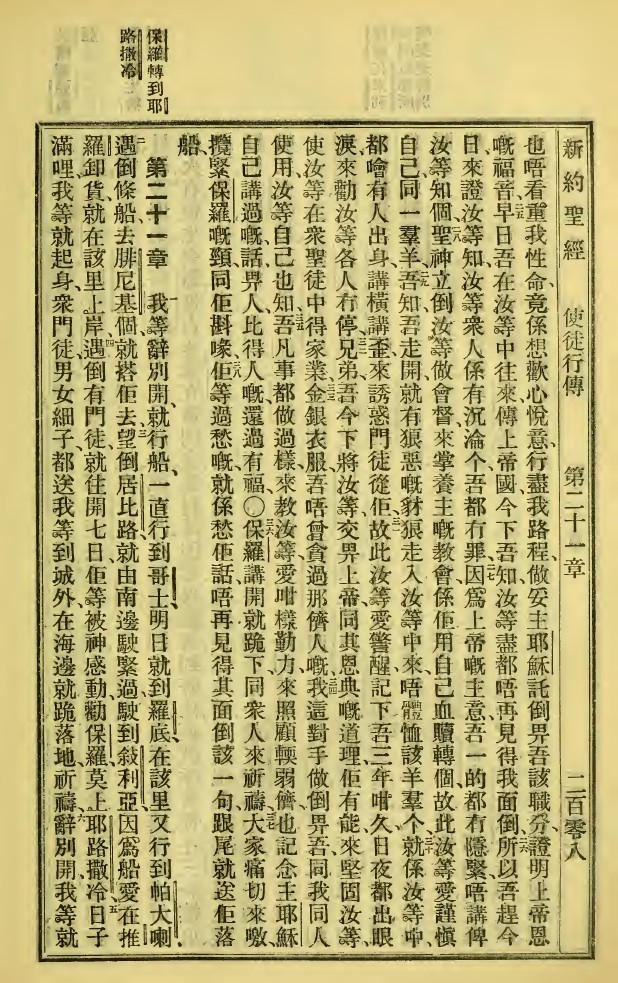 保羅轉到耶
路撒冷
新約聖經 使徒行傳 第二十一章 二百零八
也唔看重我性命、竟係想歡心悅意、行盡我路程、做妥主耶穌託倒畀吾該職分、證明上帝恩
嘅福音、早日吾在汝等中往來傳上帝國、今下吾知汝等盡都唔再見得我面倒、所以吾趕今
日來證汝等知、汝等衆人係有沉淪个、吾都冇罪、因爲上帝嘅主意、吾一的都冇隱緊唔講俾
汝等知個、聖神立倒汝等做會督、來掌養主嘅教會、係佢用自己血贖轉個、故此汝等愛謹愼
自己、同一羣羊、吾知吾走開、就有狠惡嘅豺狼走入汝等中來、唔體恤該羊羣个、就係汝等中、
都噲有人出身、講橫講歪、來誘惑門徒從佢、故此汝等愛警醒、記下吾三年咁久、日夜都出眼
淚來勸汝等各人冇停、兄弟、吾今下將汝等交畀上帝、同其恩典嘅道理、佢有能來堅固汝等、
使汝等在衆聖徒中得家業、金銀衣服、吾唔曾貪過那儕人嘅、我這對手、做倒畀吾、同我同人
使用、汝等自己也知、吾凡事都做過樣來教汝等、愛咁樣勤力來照顧輭弱儕、也記念主耶穌
自己講過嘅話、畀人比得人嘅還過有福、〇保羅講開、就跪下、同衆人來祈禱、大家痛切來噭、
攬緊保羅嘅頸、同佢斟喙、佢等過愁嘅、就係愁佢話唔再見得其面倒該一句、跟尾就送佢落
船、
第二十一章 我等辭別開、就行船、一直行到哥士、明日就到羅底、在該里又行到帕大喇、
遇倒條船去腓尼基個、就搭佢去、望倒居比路、就由南邊駛緊過、駛到敍利亞、因爲船愛在推
羅卸貨、就在該里上岸、遇倒有門徒、就住開七日、佢等被神感動、勸保羅莫上耶路撒冷、日子
滿哩、我等就起身、衆門徒、男女細子、都送我等到城外、在海邊就跪落地、祈禱、辭別開、我等就